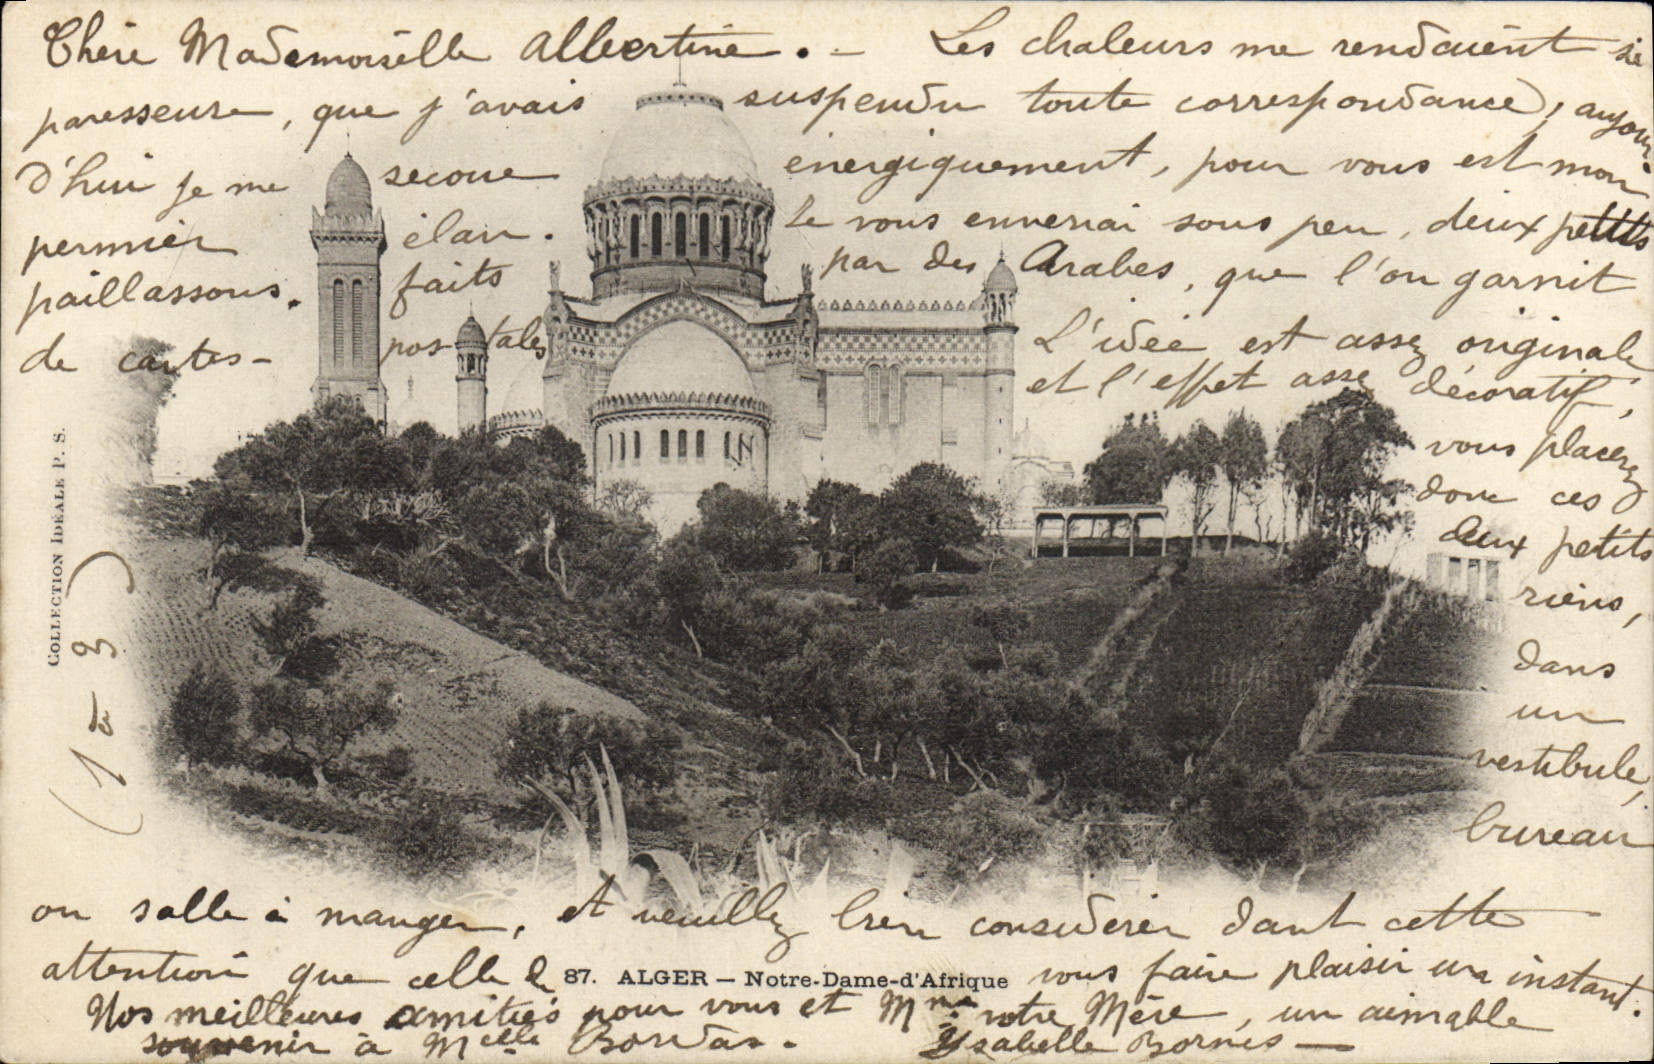 Chère Mademoiselle Albertine. - Les chaleurs me rendaient si
paresseuse, que j'avais suspendu toute correspondance, aujour
d'hui je me secoue énergiquement, pour vous est mon
permier élan. Je vous enverrai sous peu, deux petits
paillassons. faits par des Arabes, que l'on garnit
de cartes-postales L'idée est assez originale
et l'effet assez décoratif,
vous placerez
donc ces
deux petits
riens,
dans
un
vestibule,
bureau
ou salle à manger, et veuillez bien considérer dant cette
attention que celle de vous faire plaisir un instant.
87. ALGER — Notre-Dame-d'Afrique
Nos meilleures amitiés pour vous et Mme votre Mère, un aimable
souvenir à Melle Bordas. Ysabelle Bornes —
COLLECTION IDÉALE P. S.